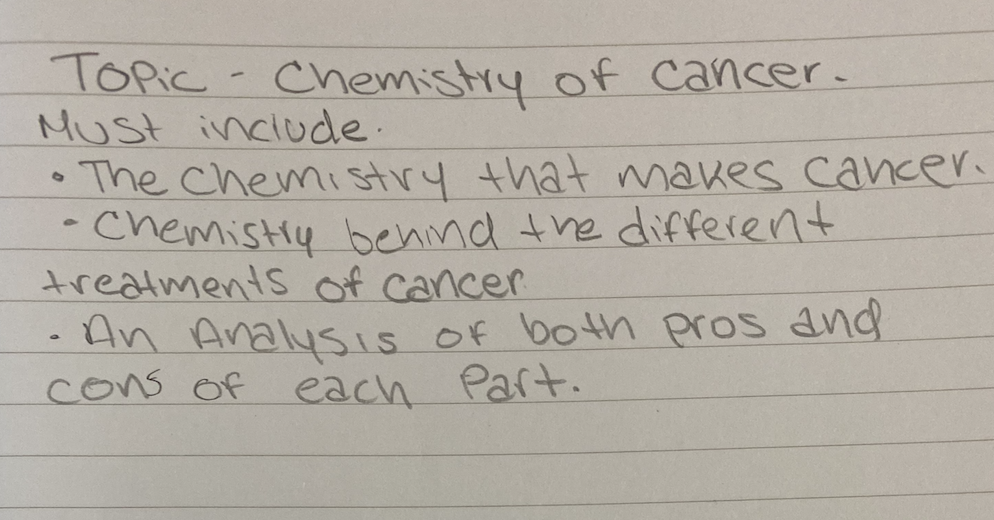 Topic - Chemistry of cancer.
Must include.
• The Chemistry that makes Cancer.
• Chemistry behind the different
treatments of cancer
• An Analysis of both pros and
cons of each Part.